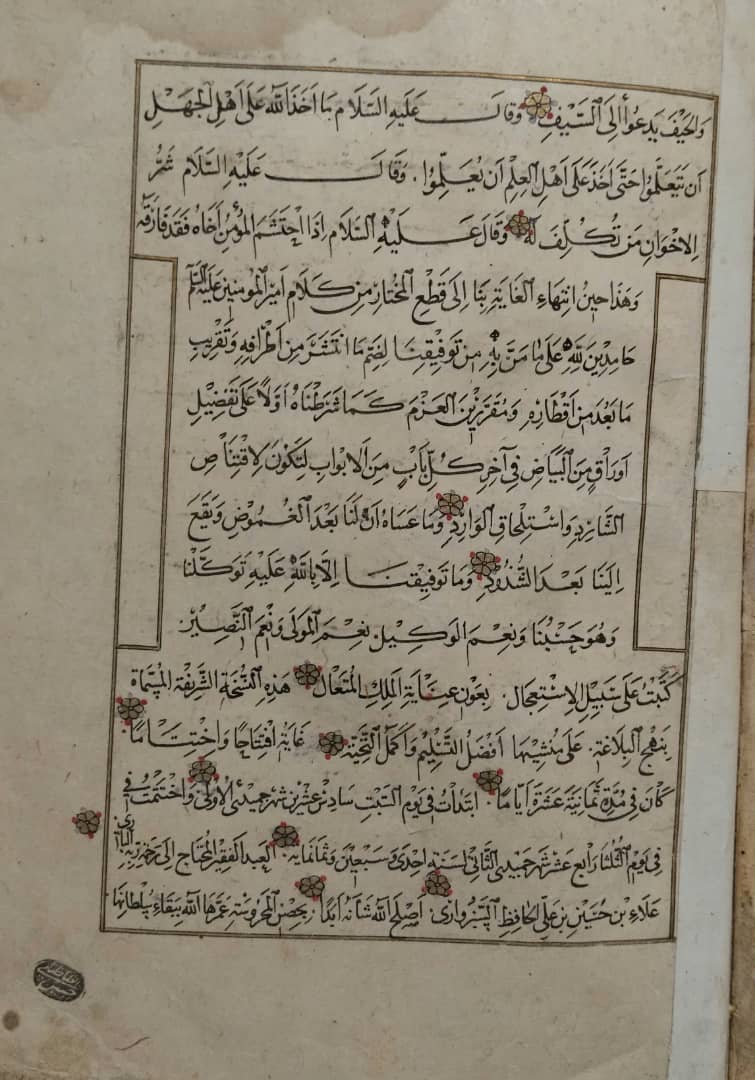 وَالحَيْفَ يَدعُوا إلَى السَّيْفِ وَقَالَ عَلَيهِ السَّلَام مَا اَخَذَ اللهُ عَلَى اَهْلِ الجَهْلِ
اَن يَتَعَلَّمُوا حَتَّى اَخَذَ عَلَى اَهْلِ العِلْمِ اَن يُعَلِّمُوا. وَقَالَ عَلَيْهِ السَّلَام شَرُّ
الِاخْوَانِ مَن تُكُلِّفَ لَهُ وَقَالَ عَلَيْهِ السَّلَام اِذَا اِحْتَشَمَ المُؤمِنُ اَخَاهُ فَقَد فَارَقَهُ
وَهَذَا حِينُ انتِهَاءِ الغَايَةِ بِنَا اِلَى قَطْعِ المُخْتَارِ مِن كَلَامِ اَمِيرِ المُومِنِينَ عَلَيْهِ السَّلَم
حَامِدِينَ لِلّهِ عَلَى مَا مَنَّ بِهِ مِن تَوفِيقِنَا لِضَمِّ مَا انتَشَرَ مِن اَطْرَافِهِ وَتَقْرِيبِ
مَا بَعُدَ مِن اَقْطَارِهِ وَمُقَرِّرِينَ العَزْمَ كَمَا شَرَطْنَاهُ اَوَّلاً عَلَى تَفْضِيلِ
اَورَاقٍ مِنَ البَيَاضِ فِي آخِرِ كُلِّ بَابٍ مِنَ الابوابِ لِتَكُونَ لِاقْتِنَاصِ
الشَّارِدِ وَاسْتِلْحَاقِ الوَارِدِ وَمَا عَسَاهُ اَن لَنَا بَعْدَ الغُمُوضِ وَيَقَعَ
اِلَينَا بَعْدَ الشُّذُوذِ وَمَا تَوفِيقُنَا اِلَّا بِاللهِ عَلَيْهِ تَوَكَّلْنَا
وَهُوَ حَسْبُنَا وَنِعْمَ الوَكِيلُ. نِعْمَ المَولَى وَنِعْمَ النَّصِيرُ.
كَتَبْتُ عَلَى سَبِيلِ الِاسْتِعجَالِ. بِعَوْنِ عِنَايَةِ المَلِكِ المُتَعَالِ هَذِهِ النُّسْخَةَ الشَّرِيفَةَ المُسَمَّاةَ
بِنَهْجِ البَلَاغَةِ. عَلَى مُنْشِيهَا اَفْضَلُ التَّسْلِيمِ وَاَكْمَلُ التَّحِيَّةِ غَايَةَ افْتِتَاحًا وَاخْتِتَامًا.
كَانَ فِي مُدَّةِ ثَمَانِيَةَ عَشَرَةَ اَيَّامًا. ابتَدَأتُ فِي يَومِ السَّبْتِ سَادِس عِشْرِين شَهرِ جميدى الاُولى وَاخْتَتَمْتُ فِي
فِي يَومِ الثُّلثَا رَابِع عَشَر شَهرِ جميدى الثَّانِي لِسَنَةِ اِحْدَى وَسَبْعِينَ وَثَمَانمَايَة. العَبدُ الفَقِيرُ المُحتَاجُ اِلَى رَحْمَةِ رَبِّهِ البَارِي
عَلَاءُ بن حُسَيْنِ بن عَلِي الحَافِظِ السَّبْزَوَارِي. اَصْلَحَ اللهُ شَانَهُ اَبَدًا. بِحِصْنِ المَحْرُوسَةِ عَمَّرَهَا اللهُ بِبَقَاءِ سُلْطَانِهَا